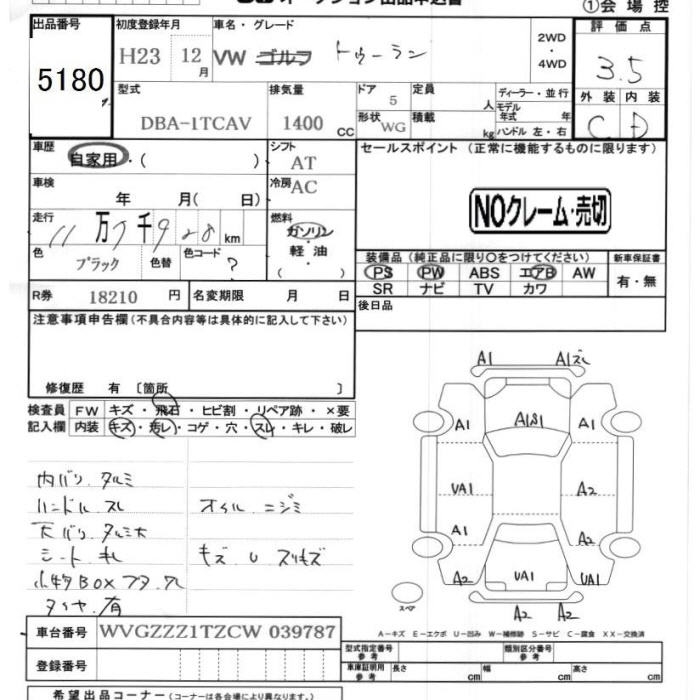 ①会場控
出品番号 初度登録年月 車名・グレード 評価点
5180 H23 12月 VW ゴルフ トゥーラン 2WD・4WD 3.5
型式 排気量 ドア 定員 ディーラー・並行 外装 内装
DBA-1TCAV 1400 CC 5 人 モデル年式 年 C D
形状 WG 積載 kg ハンドル 左・右
車歴 自家用・( ) シフト AT セールスポイント (正常に機能するものに限ります)
車検 年 月( 日) 冷房 AC
NOクレーム・売切
走行 11万7千9 28 km 燃料 ガソリン・軽油・( )
色 ブラック 色替 色コード ?
装備品(純正品に限り〇をつけてください) 新車保証書
PS PW ABS エアB AW 有・無
SR ナビ TV カワ
R券 18210 円 名変期限 月 日 後日品
注意事項申告欄(不具合内容等は具体的に記入して下さい)
修復歴 有〔箇所 〕
検査員 FW キズ・飛石・ヒビ割・リペア跡・×要
記入欄 内装 キズ・汚レ・コゲ・穴・スレ・キレ・破レ
A1
A1
A1S1
A1
A1
UA1
A2
A1
A2
A2
UA1
UA1
A2
A2
内バリ タルミ
ハンドル スレ オイル ニジミ
天バリ タルミ大
シート キズ U スリキズ
小物BOXフタ
スペア
A-キズ E-エクボ U-凹み W-補修跡 S-サビ C-腐食 XX-交換済
車台番号 WVGZZZ1TZCW 039787
型式指定番号 参考 類別区分番号 参考
登録番号 車庫証明用 参考 長さ cm 幅 cm 高さ cm
希望出品コーナー(コーナーは各会場により異なります。)